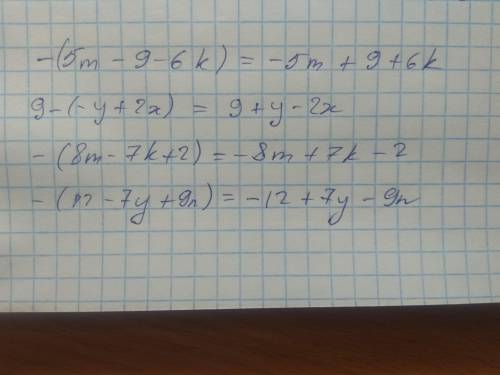 -(5m - 9 - 6k) = -5m + 9 + 6k
9 - (-y + 2x) = 9 + y - 2x
-(8m - 7k + 2) = -8m + 7k - 2
-(12 - 7y + 9n) = -12 + 7y - 9n